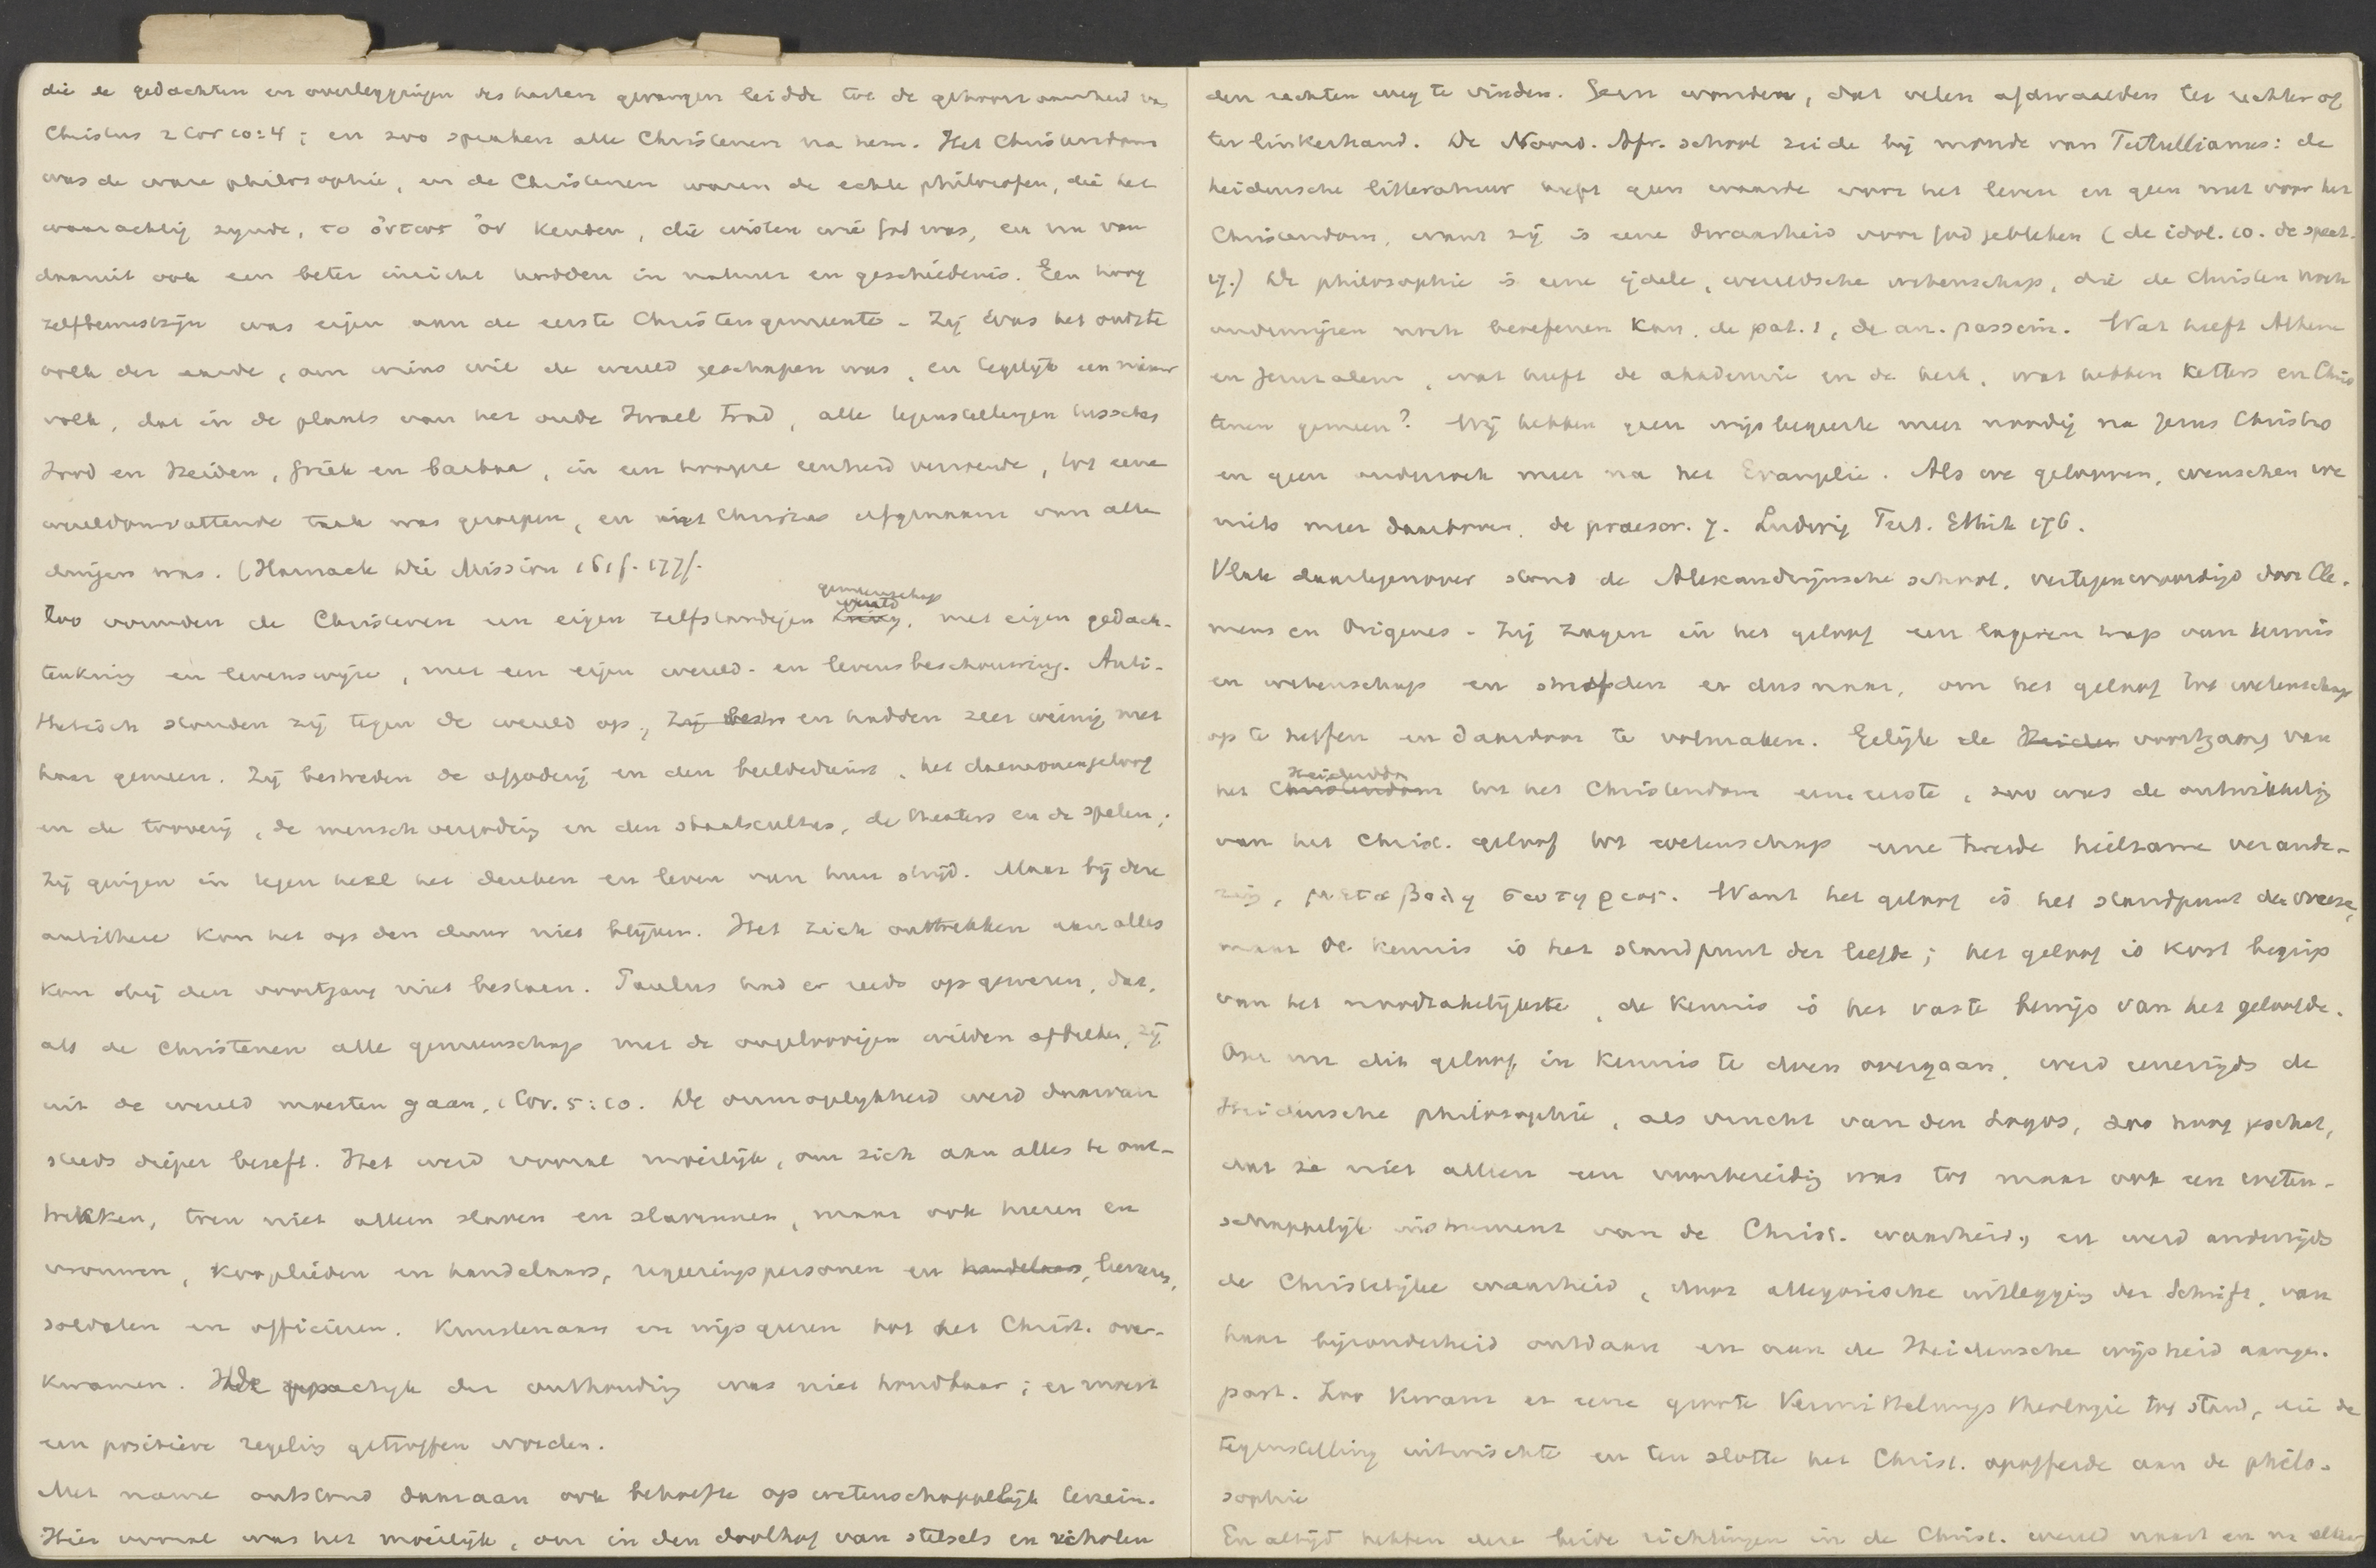 die de gedachten en overleggingen des harten gevangen leidde tot de gehoorzaamheid van
Christus 2 Cor 10:4; en zoo spraken alle Christenen na hem. Het Christendom
was de ware philosophie, en de Christenen waren de echte philosofen, die het
waarachtig zijnde, το ὄντως ὄν kenden, die wisten wie God was, en nu van
daaruit ook een beter inzicht hadden in natuur en geschiedenis. Een hoog
zelfbewustzijn was eigen aan de eerste Christengemeente. Zij was het oudste
volk der aarde, om wiens wil de wereld geschapen was, en tegelijk een nieuw
volk, dat in de plaats van het oude Israel trad, alle tegenstellingen tusschen
Jood en Heiden, Griek en barbaar, in een hoogere eenheid verzoende, tot eene
wereldomvattende taak was geroepen, en met Christus erfgenaam van alle
dingen was. (Harnack Die Mission 161f. 177f.
gemeenschap
wereld
Zoo vormden de Christenen een eigen zelfstandigen kring, met eigen gedach-
tenkring en levenswijze, met een eigen wereld- en levensbeschouwing. Anti-
thetisch stonden zij tegen de wereld op, zij en hadden zeer weinig met
haar gemeen. Zij bestreden de afgoderij en den beeldedienst, het daemonengeloof
en de tooverij, de menschvergoding en den staatscultus, de theaters en de spelen;
zij gingen in tegen heel het denken en leven van hun tijd. Maar bij deze
antithese kon het op den duur niet blijven. Het zich onttrekken aan alles
kon bij den voortgang niet bestaan. Paulus had er reeds op gewezen, dat,
als de Christenen alle gemeenschap met de ongeloovigen wilden afbreken, zij
uit de wereld moesten gaan, 1 Cor. 5:10. De onmogelijkheid werd daarvan
steeds dieper beseft. Het werd vooral moeilijk, om zich aan alles te ont-
trekken, toen niet alleen slaven en slavinnen, maar ook heeren en
vrouwen, kooplieden en handelaars, regeeringspersonen en handelaars,
soldaten en officieren. Kunstenaars en wijsgeeren tot het Christ. over-
kwamen. der onthouding was niet houdbaar; er moest
een positieve regeling getroffen worden.
Met name ontstond daaraan ook behoefte op wetenschappelijk terrein.
Hier vooral was het moeilijk, om in den doolhof van stelsels en scholen
den rechten weg te vinden. Geen wonder, dat velen afdwaalden ter rechter of
ter linkerhand. De Noord. Afr. school zeide bij monde van Tertullianus: de
heidensche litteratuur heeft geen waarde voor het leven en geen nut voor het
Christendom, want zij is eene dwaasheid voor God gebleken (de idol. 10. de spect.
17.) De philosophie is eene ijdele, wereldsche wetenschap, die de Christen noch
onderwijzen noch beoefenen kan, de pat. 1, de an. passim. Wat heeft Athene
en Jeruzalem, wat heeft de akademie en de kerk, wat hebben ketters en Chris
tenen gemeen? Wij hebben geen wijsbegeerte meer noodig na Jezus Christus
en geen onderzoek meer na het Evangelie. Als we gelooven, wenschen we
niets meer daarboven. de praescr. 7. Ludwig Tert. Ethik 176.
Vlak daartegenover stond de Alexandrijnsche school, vertegenwoordigd door Cle-
mens en Origenes. Zij zagen in het geloof een lageren trap van kennis
en wetenschap en streefden er dus naar, om het geloof tot wetenschap
op te heffen en daardoor te volmaken. Gelijk de Heiden voortgang van
Heidendom
het Christendom tot het Christendom eene eerste, zoo was de ontwikkeling
van het Christ. geloof tot wetenschap eene tweede heilzame verande-
ring, μεταβολη σωτηριος. Want het geloof is het standpunt der vreeze,
maar de kennis is het standpunt der liefde; het geloof is kort begrip
van het noodzakelijkste, de kennis is het vaste bewijs van het geloofde.
Om nu dit geloof in kennis te doen overgaan, werd eenerzijds de
Heidensche philosophie, als vrucht van den Logos, zoo hoog geschat,
dat ze niet alleen een voorbereiding was tot maar ook een weten-
schappelijk instrument van de Christ. waarheid, en werd anderzijds
de Christelijke waarheid, door allegorische uitlegging der Schrift, van
haar bijzonderheid ontdaan en aan de Heidensche wijsheid aange-
past. Zoo kwam er eene groote Vermittelungstheologie tot stand, die de
tegenstelling uitwischte en ten slotte het Christ. opofferde aan de philo-
sophie
En altijd hebben deze beide richtingen in de Christ. wereld naast en na elkaar